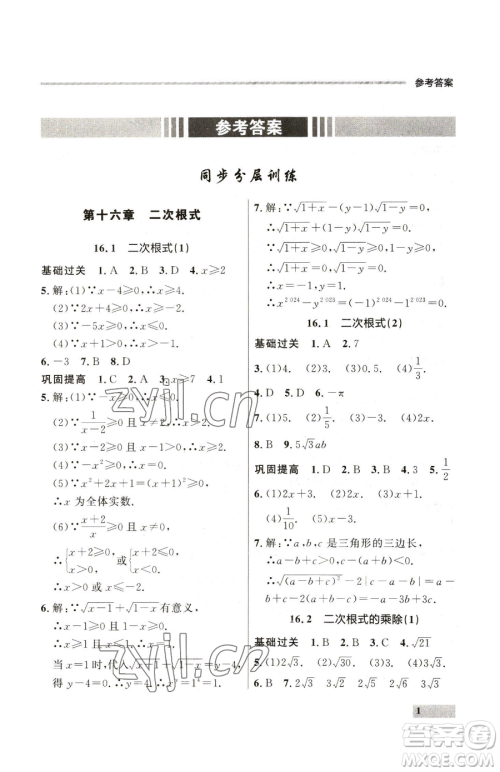 参考答案
参考答案
同步分层训练
第十六章 二次根式
16.1 二次根式(1)
基础过关 1.A 2.B 3.D 4.x≥2
5.解:(1)∵x-4≥0,∴x≥4.
(2)∵2x+4≥0,∴x≥-2.
(3)∵-5x≥0,∴x≤0.
(4)∵x+1>0,∴x>-1.
6.-3 7.B 8.D
巩固提高 1.C 2.A 3.x≥7 4.1
5.解:(1)∵x-1≥0,∴x≥1.
(2)∵1/(x-2)≥0且x-2≠0,
∴x-2>0,∴x>2.
(4)∵-x²≥0,∴x=0.
(5)∵x²+2x+2=(x+1)²+1>0,
∴x为全体实数.
(6)∵(x+2)/x≥0且x≠0,
∴{x+2≥0, x>0, 或{x+2≤0, x<0.
∴x>0或x≤-2.
6.解:∵√(x-1)+√(1-x)有意义,
∴x-1≥0,1-x≥0.
∴x≥1且x≤1,∴x=1.
当x=1时,代入√(x-1)+√(1-x)=y-4,
得y-4=0.∴y=4.
7.解:∵√(1+x)-(y-1)√(1-y)=0,
∴√(1+x)+(1-y)√(1-y)=0.
∵√(1+x)≥0,√(1-y)≥0,
∴1+x=0,1-y=0.
∴x=-1,y=1.
∴x²⁰²⁴-y²⁰²³=0.
16.1 二次根式(2)
基础过关 1.A 2.7
3.(1)4. (2)3. (3)0.5. (4)1/3.
4.D 5.D 6.-π
7.(1)5. (2)1/5. (3)6. (4)0.
8.B 9.5√3ab
巩固提高 1.D 2.B 3.A 4.3 5.1/2
6.(1)2x+3. (2)2x. (3)0.
(4)1/10. (5)-2x+3.
7.解:∵a,b,c是三角形的三边长,
∴a+b-c>0,c-a-b<0.
∴√(a-b+c)²-2|c-a-b|
=a-b+c-2(a+b-c)
=-a-3b+3c.
16.2 二次根式的乘除(1)
基础过关 1.D 2.C 3.B 4.√21
5.(1)2√3. (2)√3. (3)√3. (4)1.
6.D 7.2√3 2√5 2√6 2√7
1